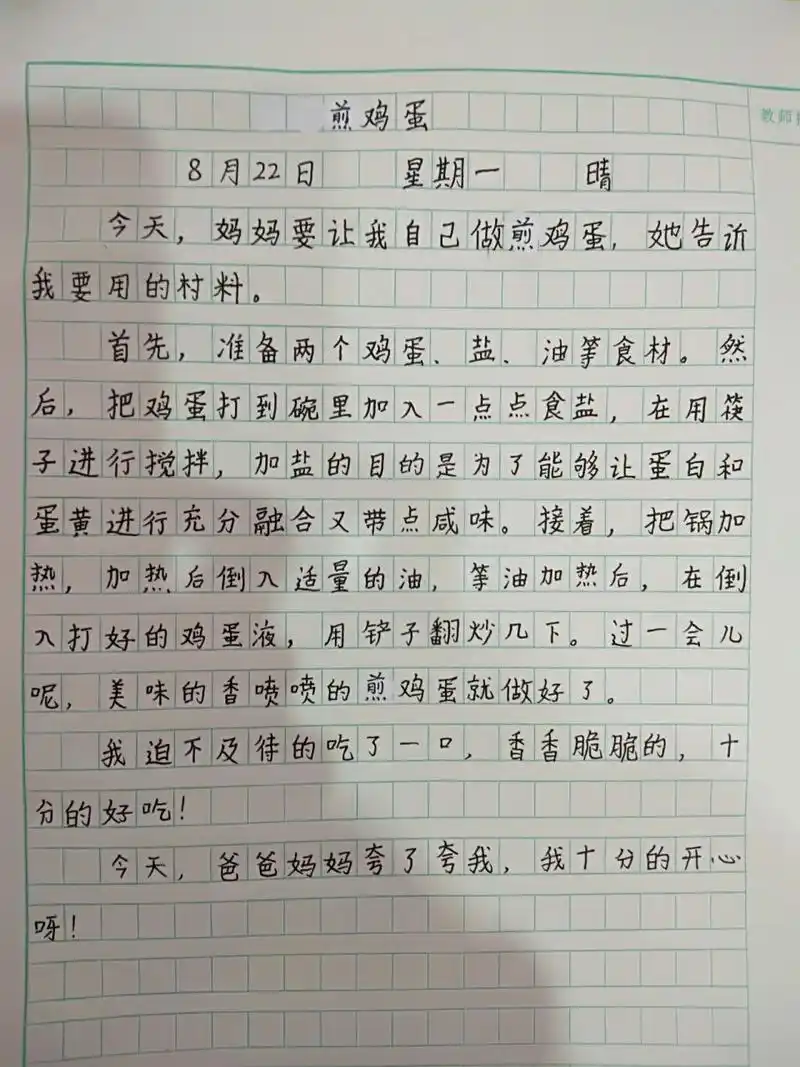 煎鸡蛋
8月22日 星期一 晴
今天，妈妈要让我自己做煎鸡蛋，她告诉
我要用的材料。
首先，准备两个鸡蛋、盐、油等食材。然
后，把鸡蛋打到碗里加入一点点食盐，在用筷
子进行搅拌，加盐的目的是为了能够让蛋白和
蛋黄进行充分融合又带点咸味。接着，把锅加
热，加热后倒入适量的油，等油加热后，在倒
入打好的鸡蛋液，用铲子翻炒几下。过一会儿
呢，美味的香喷喷的煎鸡蛋就做好了。
我迫不及待的吃了一口，香香脆脆的，十
分的好吃！
今天，爸爸妈妈夸了夸我，我十分的开心
呀！
教师